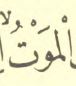 الْمَوْتُ